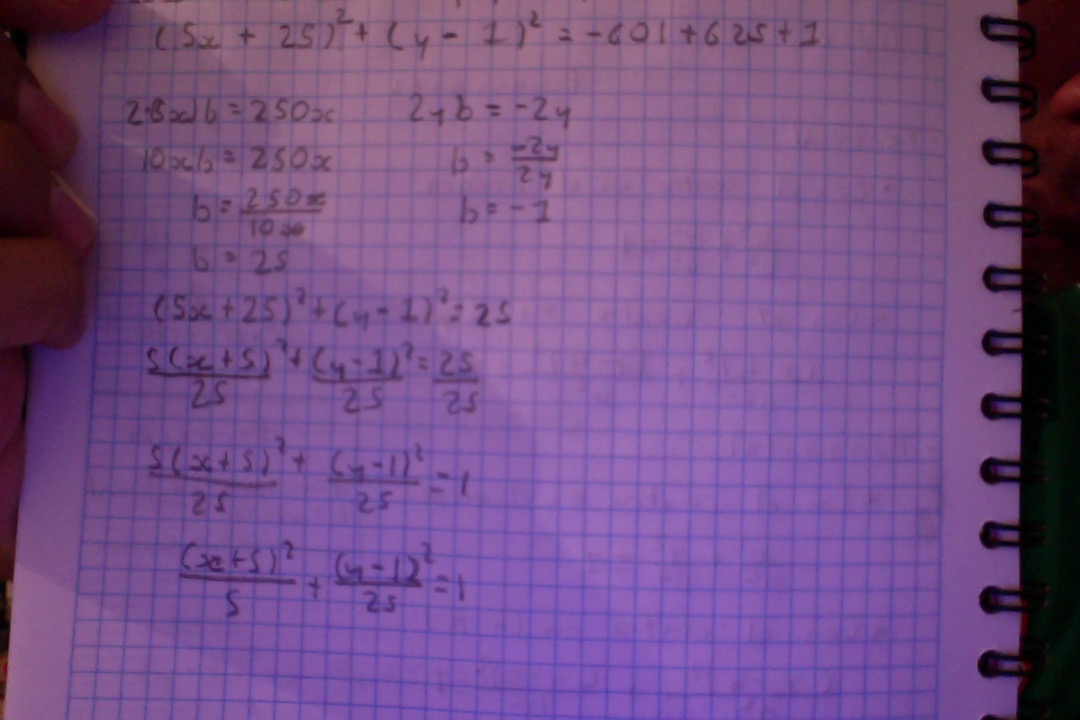 (5x + 25)² + (y - 1)² = -601 + 625 + 1
2(5x)b = 250x 2yb = -2y
10xb = 250x b = -2y/2y
b = 250x/10x b = -1
b = 25
(5x + 25)² + (y - 1)² = 25
5(x+5)²/25 + (y-1)²/25 = 25/25
5(x+5)²/25 + (y-1)²/25 = 1
(x+5)²/5 + (y-1)²/25 = 1